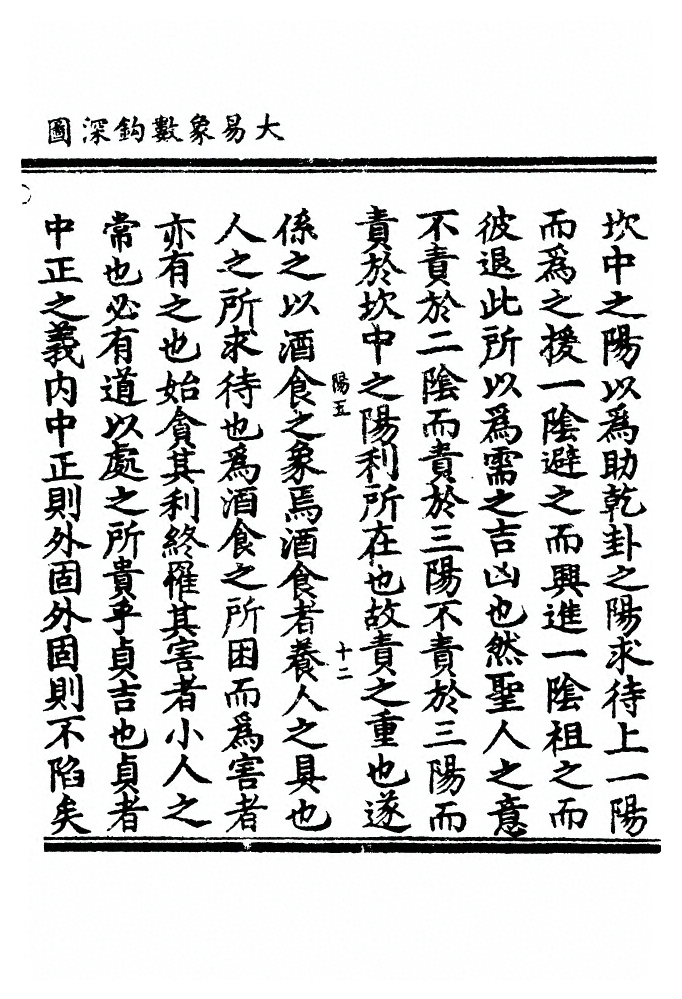 大易象數鈎深圖
坎中之陽以爲助乾卦之陽求待上一陽
而爲之援一陰避之而興進一陰祖之而
彼退此所以爲需之吉凶也然聖人之意
不責於二陰而責於三陽不責於三陽而
責於坎中之陽利所在也故責之重也遂
陽五
十二
係之以酒食之象焉酒食者養人之具也
人之所求待也爲酒食之所困而爲害者
亦有之也始貪其利終罹其害者小人之
常也必有道以處之所貴乎貞吉也貞者
中正之義內中正則外固外固則不陷矣